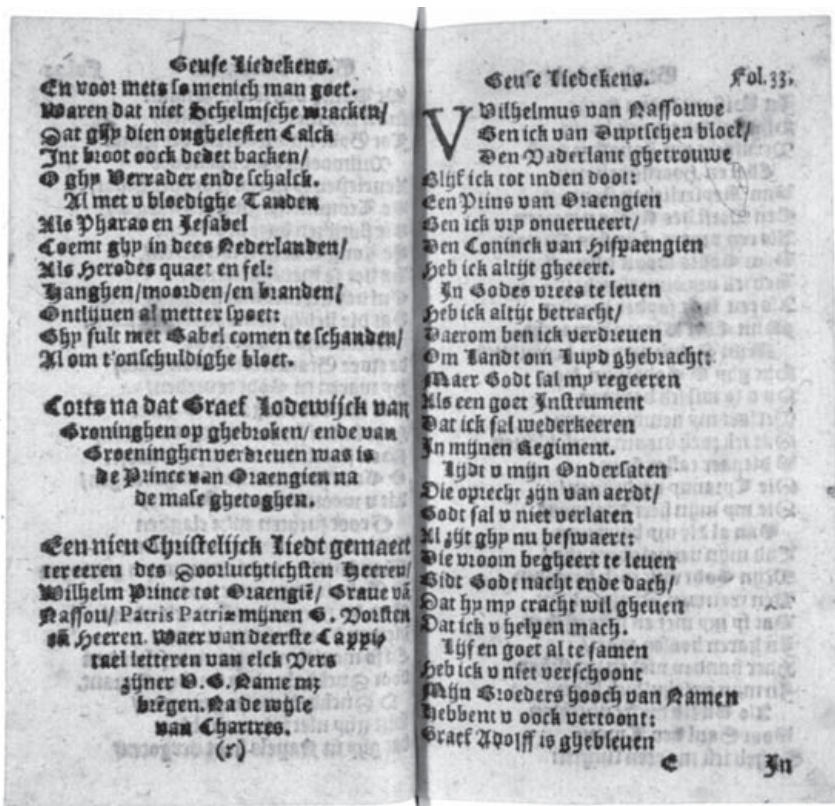 Geuse Liedekens.
En voor mets so menich man goet.
Waren dat niet Schelmsche wracken/
Dat ghy dien ongheleften Calck
Int broot oock dedet backen/
O ghy Verrader ende schalck.
Al met v bloedighe Tanden
Als Pharao en Jesabel
Coemt ghy in dees Nederlanden/
Als Herodes quaet en fel:
Hanghen/moorden/en branden/
Ontlijuen al metter spoet:
Ghy sult met Babel comen te schanden/
Al om t'onschuldighe bloet.
Corts na dat Graef Lodewijck van
Groninghen op ghebroken/ ende van
Groeninghen verdreuen was is
de Prince van Oraengien na
de mase ghetoghen.
Een nieu Christelijck Liedt gemaect
ter eeren des Doorluchtichsten Heeren/
Wilhelm Prince tot Oraengiē/ Graue vā
Nassou/ Patris Patriæ mijnen G. Vorsten
Heeren. Waer van deerste Cappi-
tael letteren van elck Vers
zijner V. G. Name
brēgen. Na de wijse
van Chartres.
(r)
Geuse Liedekens. Fol.33.
VVilhelmus van Nassouwe
Ben ick van Duytschen bloet/
Den Vaderlant ghetrouwe
Blijf ick tot inden doot:
Een Prins van Oraengien
Ben ick vry onuerueert/
Den Coninck van Hispaengien
Heb ick altijt gheeert.
In Godes vrees te leuen
Heb ick altijt betracht/
Daerom ben ick verdreuen
Om Landt om Luyd ghebracht:
Maer Godt sal my regeeren
Als een goet Instrument
Dat ick sal wederkeeren
In mijnen Regiment.
Lijdt v mijn Ondersaten
Die oprecht zijn van aerdt/
Godt sal v niet verlaten
Al zijt ghy nu beswaert:
Die vroom begheert te leuen
Bidt Godt nacht ende dach/
Dat hy my cracht wil gheuen
Dat ick v helpen mach.
Lijf en goet al te samen
Heb ick v niet verschoont
Mijn Broeders hooch van Namen
Hebbent v oock vertoont:
Graef Adolff is ghebleuen
E In